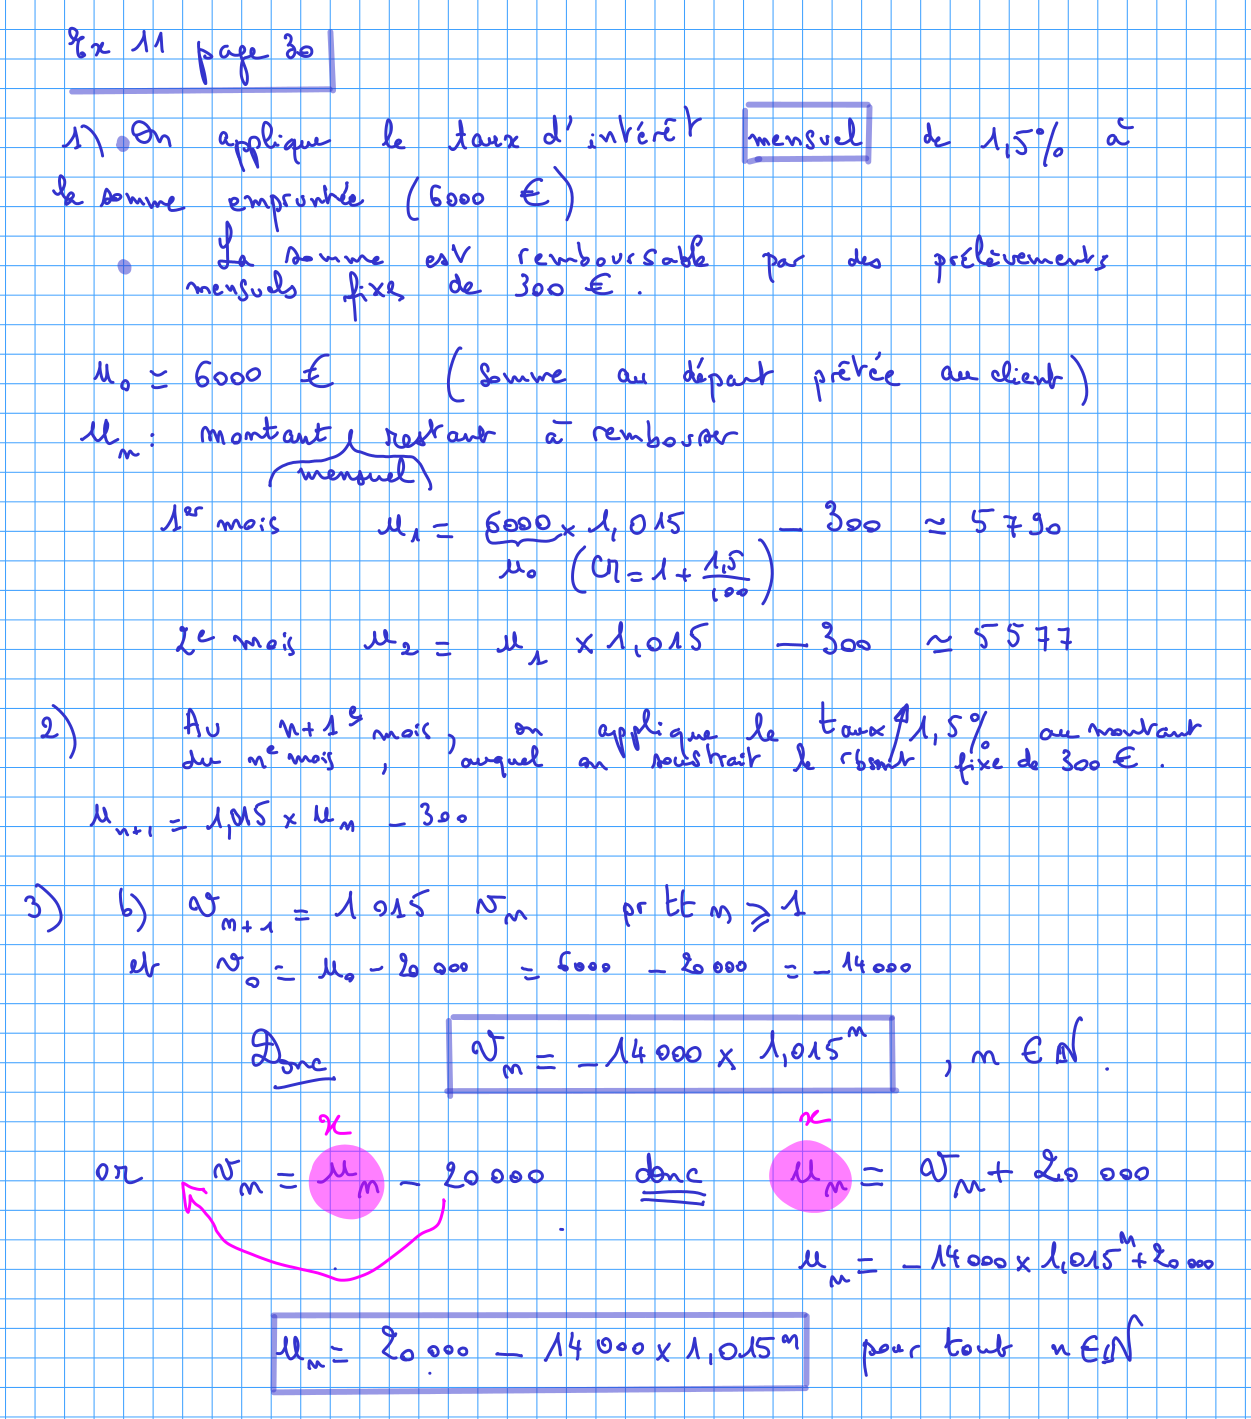 Ex 11 page 30
1) • On applique le taux d'intérêt mensuel de 1,5% à
la somme empruntée (6000 €)
• La somme est remboursable par des prélèvements
mensuels fixes de 300 €.
u₀ = 6000 € (somme au départ prêtée au client)
uₙ : montant restant à rembourser
mensuel
1er mois u₁ = 6000 × 1,015 − 300 ≃ 5790
u₀ (CM = 1 + 1,5/100)
2e mois u₂ = u₁ × 1,015 − 300 ≃ 5577
2) Au n+1e mois, on applique le taux 1,5% au montant
du ne mois, auquel on soustrait le rbsmt fixe de 300 €.
uₙ₊₁ = 1,015 × uₙ − 300
3) b) vₙ₊₁ = 1 015 vₙ pr tt n ⩾ 1
et v₀ = u₀ − 20 000 = 6000 − 20 000 = − 14 000
Donc vₙ = − 14 000 × 1,015ⁿ , n ∈ ℕ.
x x
or vₙ = uₙ − 20 000 donc uₙ = vₙ + 20 000
uₙ = − 14 000 × 1,015ⁿ + 20 000
uₙ = 20 000 − 14 000 × 1,015ⁿ pour tout n ∈ ℕ